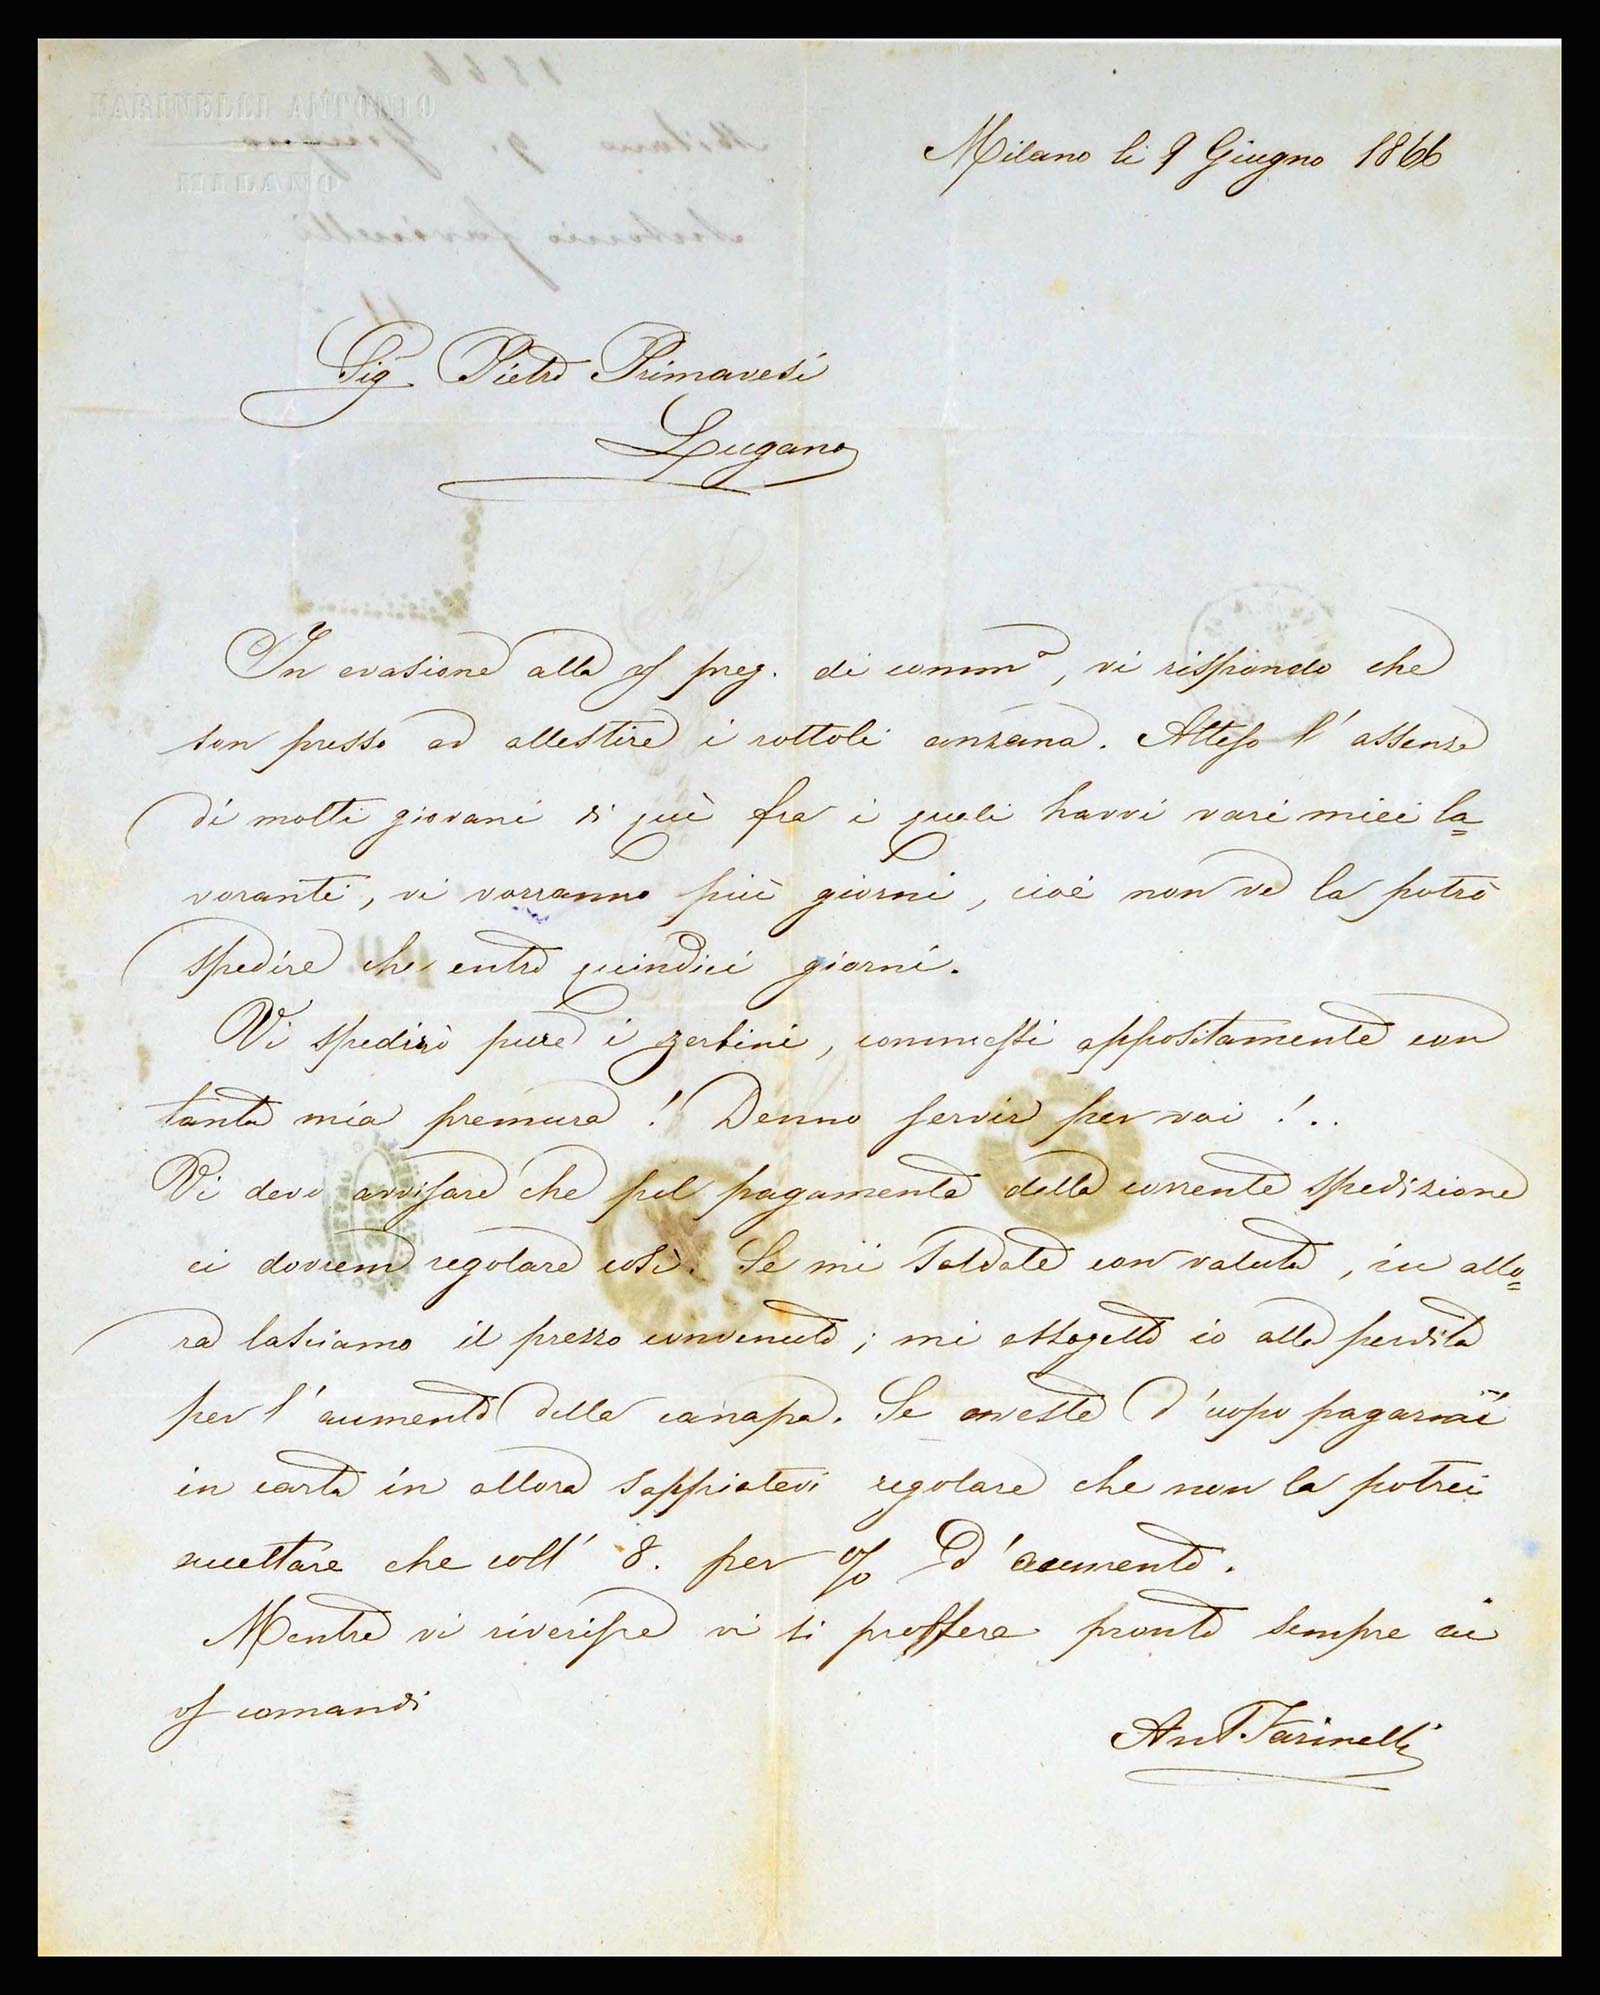 FARINELLI ANTONIO
MILANO
Milano li 9 Giugno 1866
Sigr. Pietro Primavesi
Lugano
In evasione alla vs preg. di comma, vi rispondo che
son presso ad allestire i rottoli anzana. Atteso l'assenza
di molti giovani di quì fra i quali havvi vari miei la=
voranti, vi vorranno più giorni, cioé non ve la potrò
spedire che entro quindici giorni.
Vi spedirò pure i zerbini, commessi appositamente con
tanta mia premura! Denno servir per voi!..
Vi devo avvisare che pel pagamento della corrente spedizione
ci dovrem regolare così. Se mi saldate con valuta, in allo=
ra lasciamo il prezzo convenuto; mi assogetto io alla perdita
per l'aumento della canapa. Se aveste d'uopo pagarmi
in carta in allora sappiatevi regolare che non la potrei
accettare che coll' 8. per % d'aumento.
Mentre vi riverisce vi si proffera pronto sempre ai
vs comandi
Ant. Farinelli